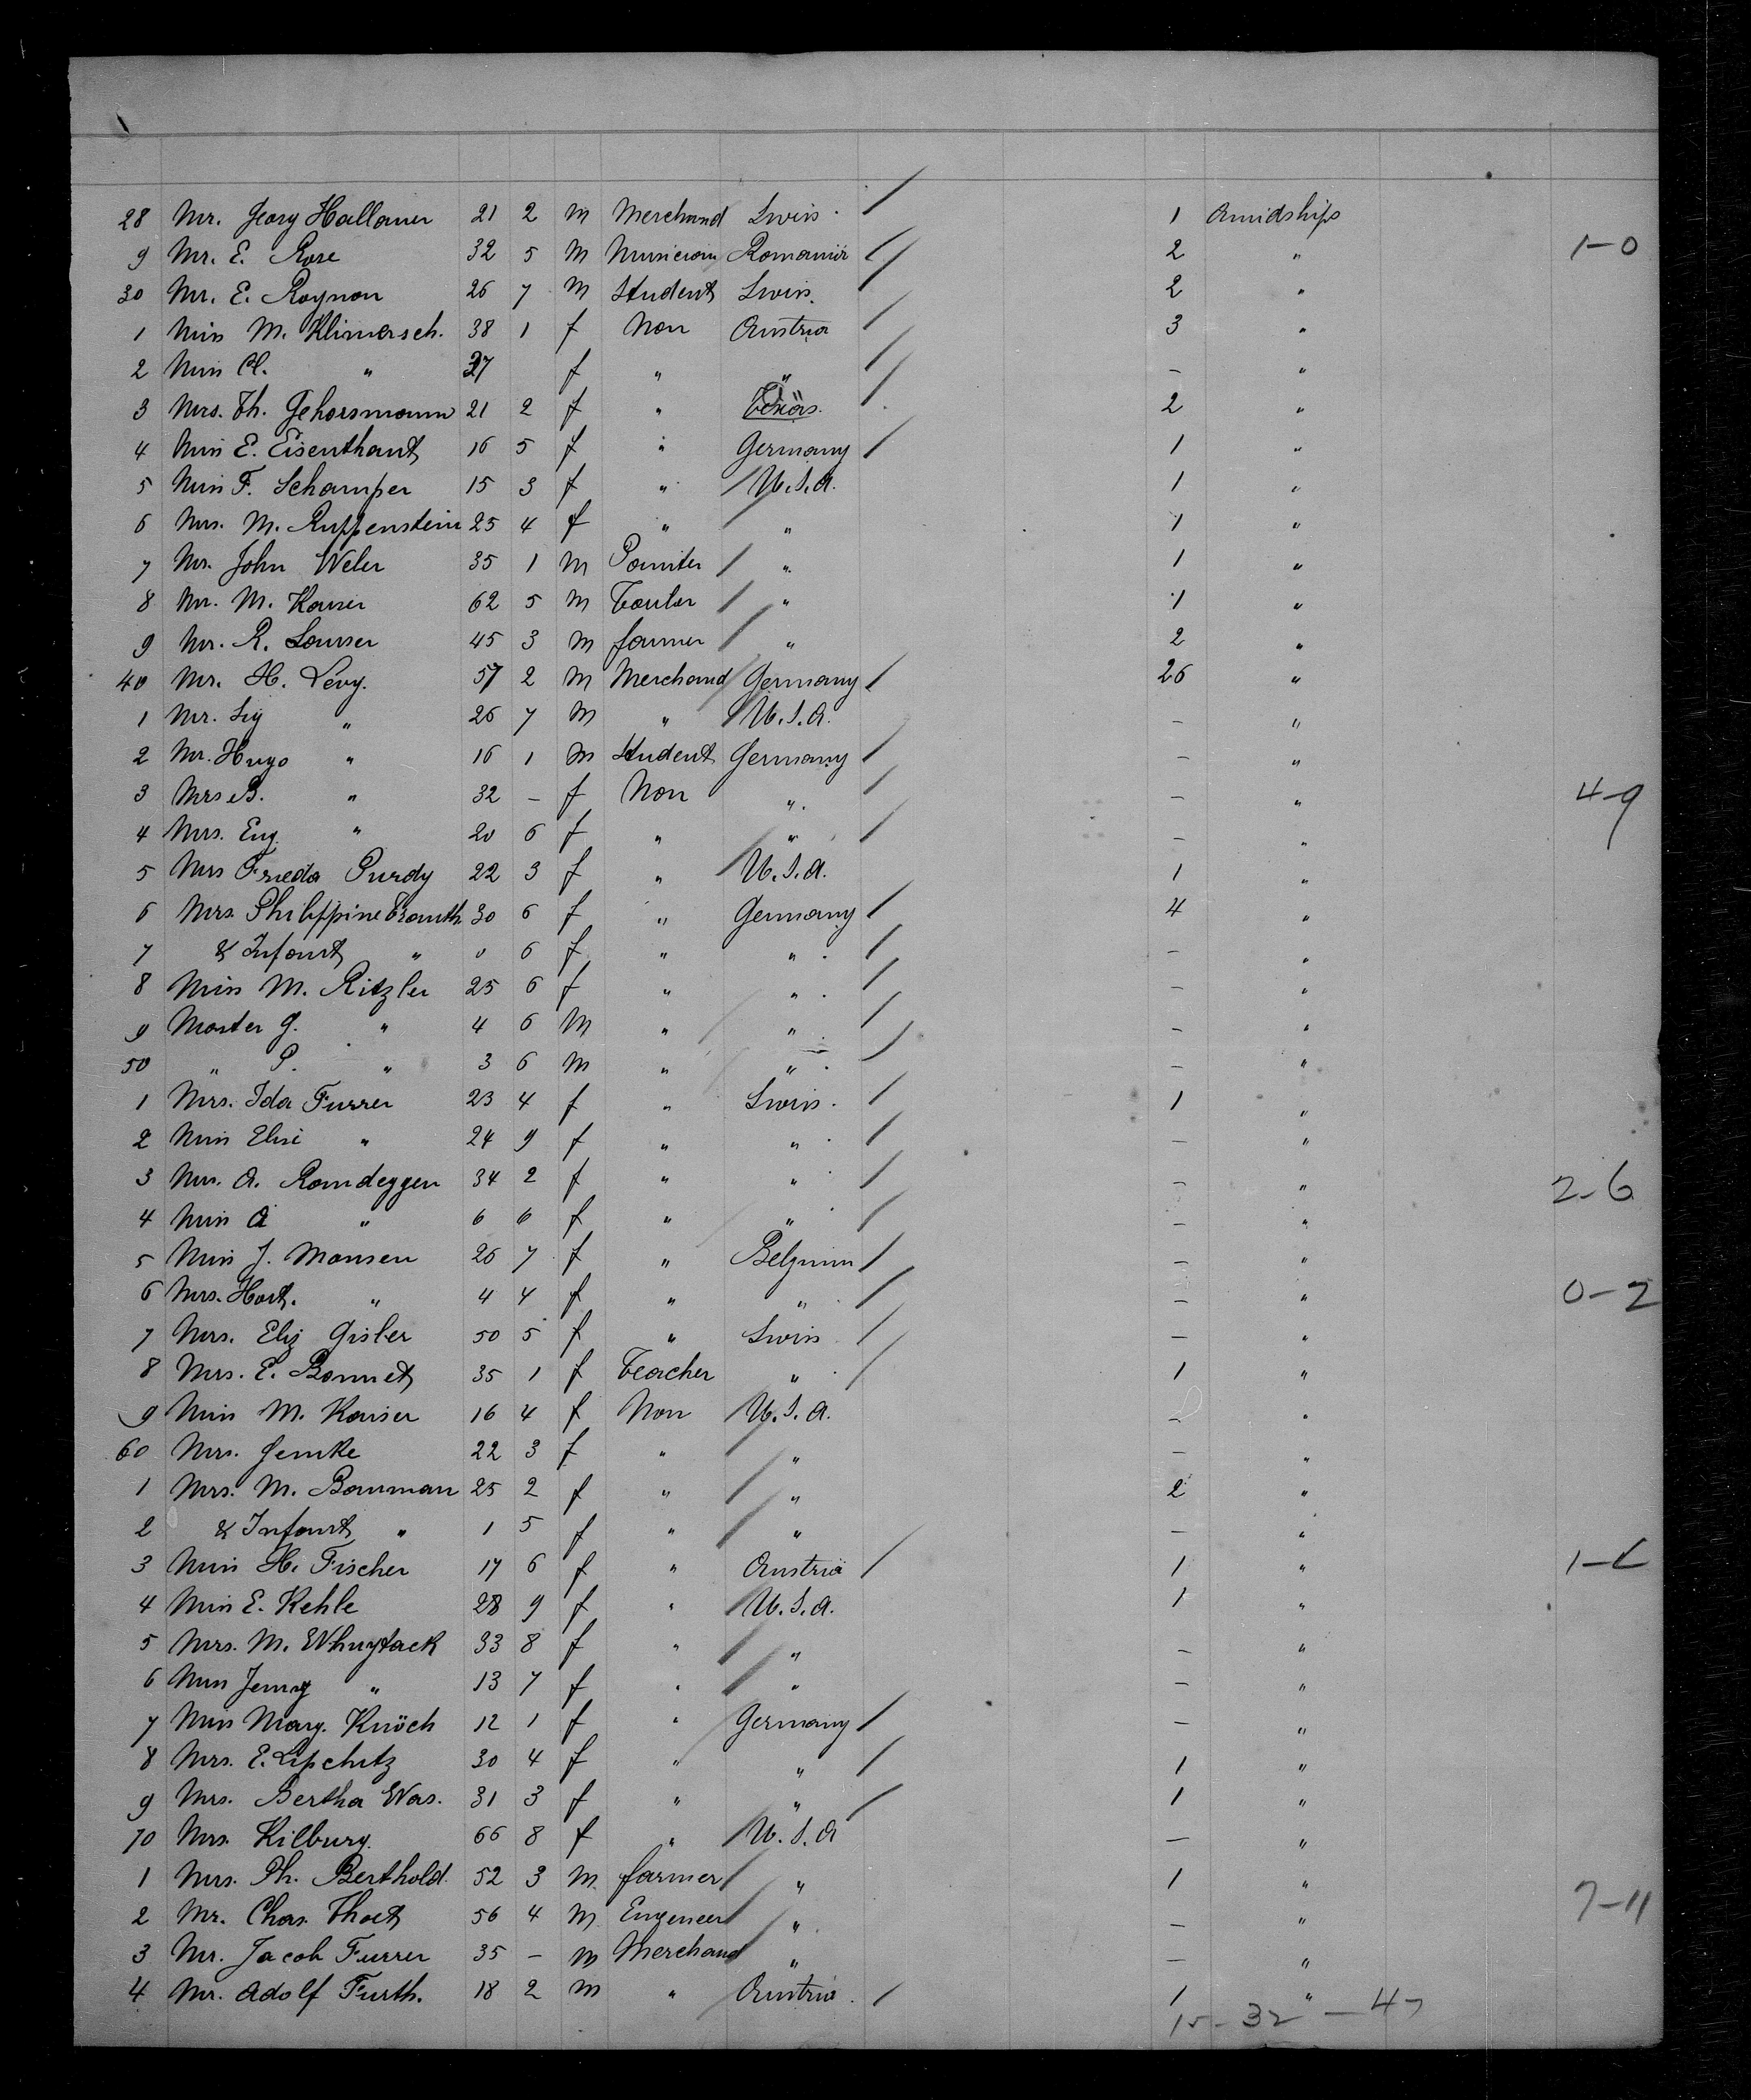 28 Mr. Georg Hallauer 21 2 m Merchand Swiss. 1 Amidships
9 Mr. E. Rose 32 5 m Musician Romaniä 2 " 1-0
30 Mr. E. Raynon 26 7 m Student Swiss. 2 "
1 Miss M. Klimersch. 38 1 f Non Austria 3 "
2 Miss Cl. " 27 f " " - "
3 Mrs. Th. Gehorsmann 21 2 f " Texas. 2 "
4 Miss E. Eisenthant 16 5 f " Germany 1 "
5 Miss F. Schamper 15 3 f " U.S.A. 1 "
6 Mrs. M. Ruppenstein 25 4 f " " 1 "
7 Mr. John Weler 35 1 m Painter " 1 "
8 Mr. M. Kaiser 62 5 m Tailor " 1 "
9 Mr. R. Lauser 45 3 m farmer " 2 "
40 Mr. H. Levy. 57 2 m Merchand Germany 26 "
1 Mr. Sig " 26 7 m " U.S.A. - "
2 Mr. Hugo " 16 1 m Student Germany - "
3 Mrs B. " 32 - f Non " - " 4-9
4 Mrs. Eug. " 20 6 f " " - "
5 Mrs Frieda Purdy 22 3 f " U.S.A. 1 "
6 Mrs Philippine Brauth 30 6 f " Germany 4 "
7 & Infant " 0 6 f " " - "
8 Miss M. Ritzler 25 6 f " " - "
9 Master G. " 4 6 m " " - "
50 " P. " 3 6 m " " - "
1 Mrs. Ida Furrer 23 4 f " Swiss. 1 "
2 Miss Elise " 24 9 f " " - "
3 Mrs. A. Ramdeggen 34 2 f " " - " 2-6
4 Miss A " 6 6 f " " - "
5 Miss J. Mansen 26 7 f " Belgium - "
6 Mrs. Hort. " 4 4 f " " - " 0-2
7 Mrs. Eliz Gisler 50 5 f " Swiss - "
8 Mrs. E. Bonnet 35 1 f Teacher " 1 "
9 Miss M. Kaiser 16 4 f Non U.S.A. - "
60 Mrs. Jenike 22 3 f " " - "
1 Mrs. M. Bauman 25 2 f " " 2 "
2 & Infant " 1 5 f " " - "
3 Miss H. Fischer 17 6 f " Austria 1 "
4 Miss E. Kehle 28 9 f " U.S.A. 1 "
5 Mrs. M. Whuytack 33 8 f " " - "
6 Miss Jenny " 13 7 f " " - "
7 Miss Mary. Knöch 12 1 f " Germany - "
8 Mrs. E. Lipchitz 30 4 f " " 1 "
9 Mrs. Bertha Was. 31 3 f " " 1 "
70 Mrs. Kilburg. 66 8 f " U.S.A - "
1 Mrs. Ph. Berthold. 52 3 m farmer " 1 "
2 Mr. Chas. Thoet 56 4 m Engeneer " - " 7-11
3 Mr. Jacob Furrer 35 - m Merchand " - "
4 Mr. Adolf Furth. 18 2 m " Austria. 1 "
15-32-47